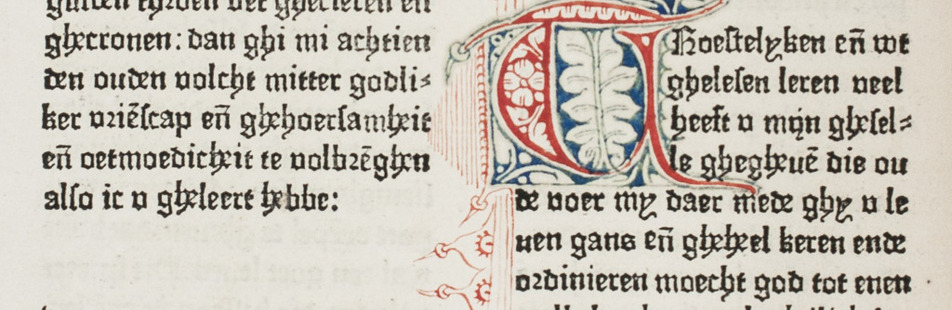 gulden tyroen der ghecieren en
ghecronen: dan ghi mi achtien
den ouden volcht mitter godli⸗
ker vriēscap en̄ ghehoersamheit
en̄ oetmoedicheit te volbrēghen
also ic v gheleert hebbe:
TRoestelyken en̄ wt
ghelesen leren veel
heeft v mijn ghesel⸗
le ghegheuē die ou
de voer my daer mede ghy v le
uen gans en̄ gheheel keren ende
ordinieren moecht god tot enen